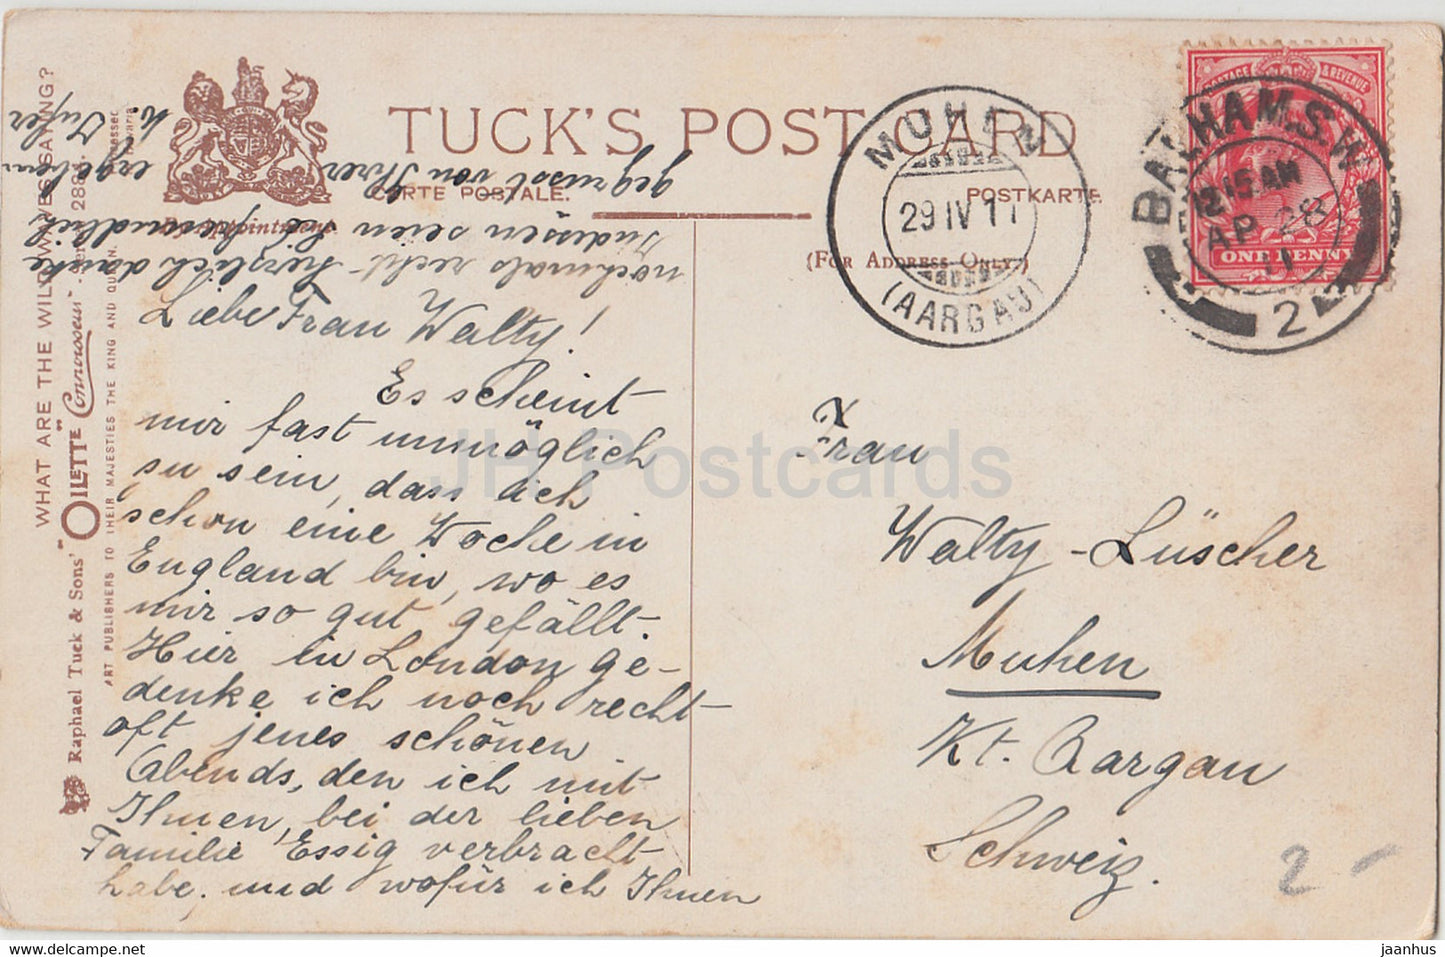 TUCK'S POST CARD
CARTE POSTALE.
POSTKARTE
(FOR ADDRESS ONLY.)
By Appointment
WHAT ARE THE WILD WAVES SAYING?
Raphael Tuck & Sons' "OILETTE" Connoisseur
ART PUBLISHERS TO THEIR MAJESTIES THE KING AND QUEEN.
MUHEN
29 IV 11
(AARGAU)
BALHAM.S.W.
12 15 AM
AP 28
11
2
POSTAGE & REVENUE
ONE PENNY
Liebe Frau Walty!
Es scheint
mir fast unmöglich
zu sein, dass ich
schon eine Woche in
England bin, wo es
mir so gut gefällt.
Hier in London ge-
denke ich noch recht
oft jenes schönen
Abends, den ich mit
Ihnen, bei der lieben
Familie Essig verbracht
habe, und wofür ich Ihnen
nochmals recht herzlich danke
Indessen seien Sie freundlich
gegrüsst von Ihrer
ergebenen
Frau
Walty-Lüscher
Muhen
Kt. Aargau
Schweiz.
2-
JH Postcards
www.delcampe.net
jaanhus